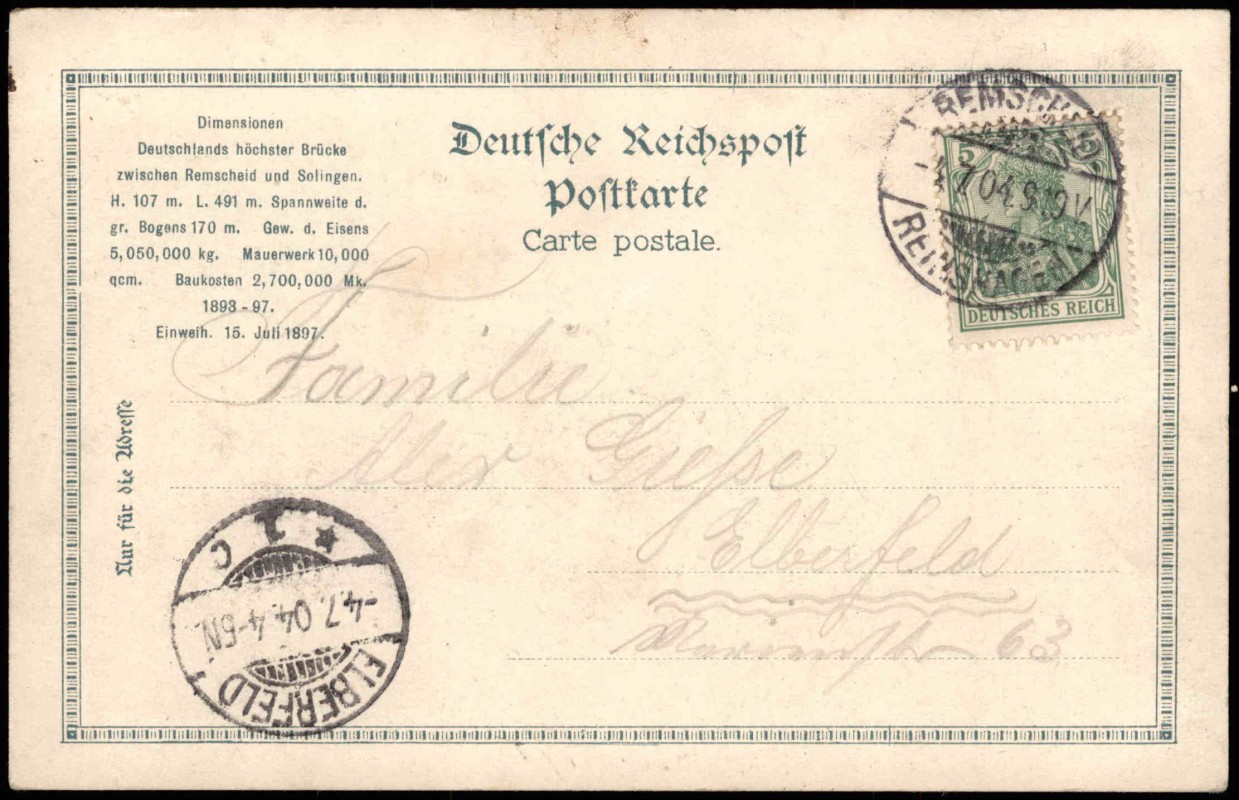 Dimensionen
Deutschlands höchster Brücke
zwischen Remscheid und Solingen.
H. 107 m. L. 491 m. Spannweite d.
gr. Bogens 170 m. Gew. d. Eisens
5,050,000 kg. Mauerwerk 10,000
qcm. Baukosten 2,700,000 Mk.
1893-97.
Einweih. 15. Juli 1897.
Deutsche Reichspost
Postkarte
Carte postale.
5
DEUTSCHES REICH
REMSCHEID
4.7.04.
REINSHAGEN
Nur für die Adresse
Familie
Alex Gieße
Elberfeld
Marienstr 63
* 1 c
-4.7.04.4-5N.
ELBERFELD